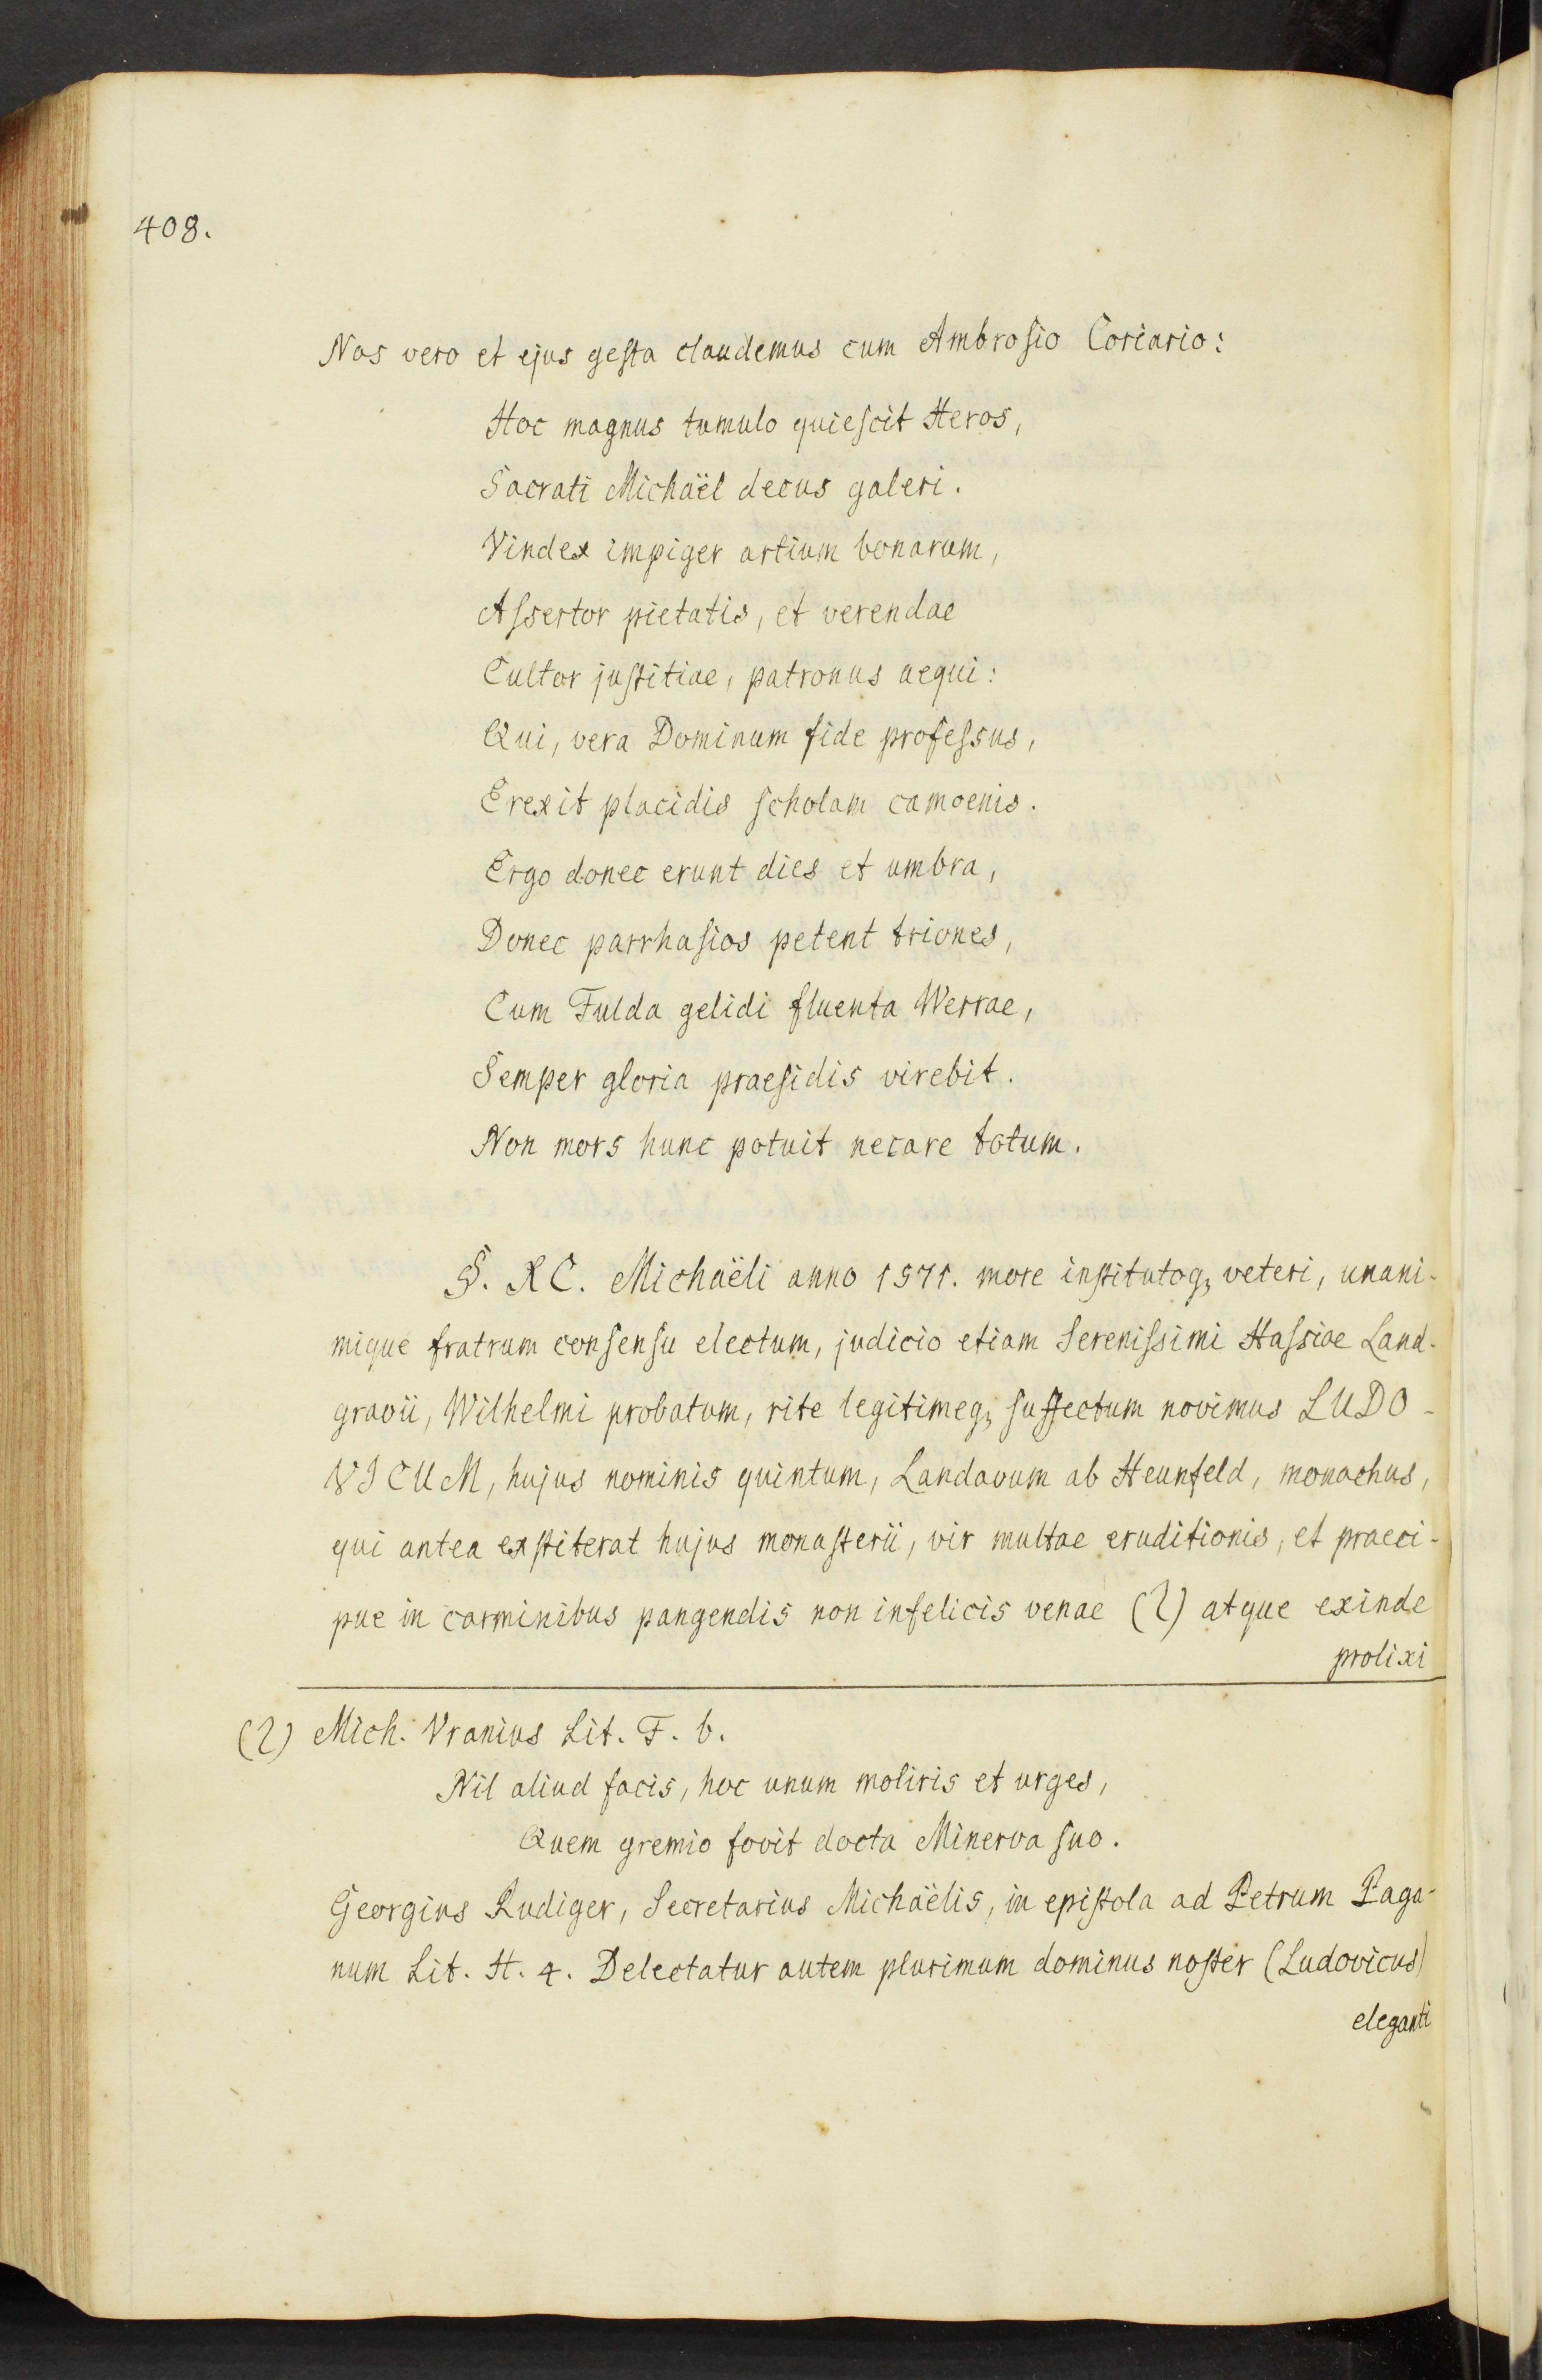 408.
Nos vero et ejus gesta claudemus cum Ambrosio Coriario:
Hoc magnus tumulo quiescit Heros,
Sacrati Michaël decus galeri.
Vindex impiger artium bonarum,
Assertor pietatis, et verendae
Cultor justitiae, patronus aequi:
Qui, vera Dominum fide professus,
Erexit placidis scholam camoenis.
Ergo donec erunt dies et umbra,
Donec parrhasios petent triones,
Cum Fulda gelidi fluenta Werrae,
Semper gloria praesidis virebit.
Non mors hunc potuit necare totum.
§. XC. Michaëli anno 1571. more institutoq; veteri, unani-
mique fratrum consensu electum, judicio etiam Serenissimi Hassiae Land-
gravii, Wilhelmi probatum, rite legitimeq; suffectum novimus LUDO-
VICUM, hujus nominis quintum, Landavum ab Heunfeld, monachus,
qui antea exstiterat hujus monasterii, vir multae eruditionis, et praeci-
pue in carminibus pangendis non infelicis venae (2) atque exinde
prolixi
(2) Mich. Vranius Lit. F. b.
Nil aliud facis, hoc unum moliris et urges,
Quem gremio fovit docta Minerva suo.
Georgius Rudiger, Secretarius Michaëlis, in epistola ad Petrum Paga-
num Lit. H. 4. Delectatur autem plurimum dominus noster (Ludovicus)
eleganti